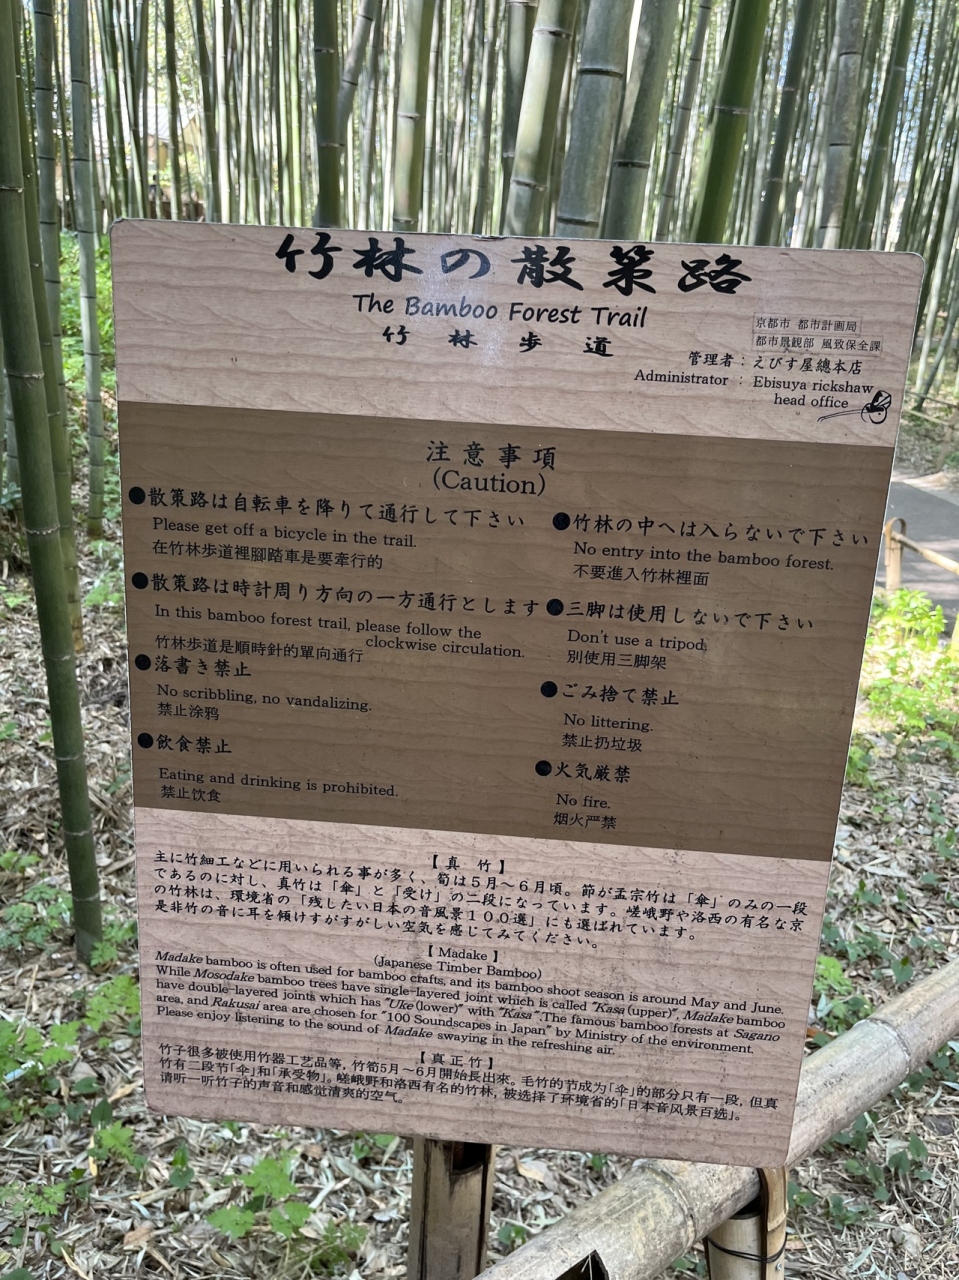 竹林の散策路
The Bamboo Forest Trail
竹林歩道
京都市 都市計画局
都市景観部 風致保全課
管理者：えびす屋總本店
Administrator : Ebisuya rickshaw
head office
注意事項
(Caution)
●散策路は自転車を降りて通行して下さい
Please get off a bicycle in the trail.
在竹林歩道裡腳踏車是要牽行的
●散策路は時計周り方向の一方通行とします
In this bamboo forest trail, please follow the
clockwise circulation.
竹林歩道是順時針的單向通行
●落書き禁止
No scribbling, no vandalizing.
禁止涂鸦
●飲食禁止
Eating and drinking is prohibited.
禁止饮食
●竹林の中へは入らないで下さい
No entry into the bamboo forest.
不要進入竹林裡面
●三脚は使用しないで下さい
Don't use a tripod.
別使用三脚架
●ごみ捨て禁止
No littering.
禁止扔垃圾
●火気厳禁
No fire.
烟火严禁
【真 竹】
主に竹細工などに用いられる事が多く、筍は５月～６月頃。節が孟宗竹は「傘」のみの一段
であるのに対し、真竹は「傘」と「受け」の二段になっています。嵯峨野や洛西の有名な京
の竹林は、環境省の「残したい日本の音風景１００選」にも選ばれています。
是非竹の音に耳を傾けすがすがしい空気を感じてみてください。
【 Madake 】
(Japanese Timber Bamboo)
Madake bamboo is often used for bamboo crafts, and its bamboo shoot season is around May and June.
While Mosodake bamboo trees have single-layered joint which is called "Kasa (upper)", Madake bamboo
have double-layered joints which has "Uke (lower)" with "Kasa". The famous bamboo forests at Sagano
area, and Rakusai area are chosen for "100 Soundscapes in Japan" by Ministry of the environment.
Please enjoy listening to the sound of Madake swaying in the refreshing air.
【真正竹】
竹子很多被使用竹器工艺品等，竹筍5月～6月開始長出來。毛竹的节成为「伞」的部分只有一段，但真
竹有二段节「伞」和「承受物」。嵯峨野和洛西有名的竹林，被选择了环境省的「日本音风景百选」。
请听一听竹子的声音和感觉清爽的空气。